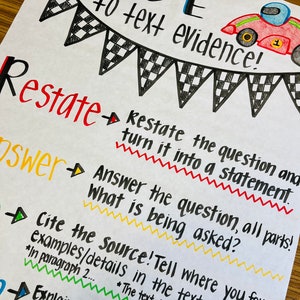 to text evidence!
Restate → Restate the question and
turn it into a statement.
nswer → Answer the question, all parts!
What is being asked?
→ Cite the Source! Tell where you
examples/details in the text
*In paragraph 2... *The text
Explain